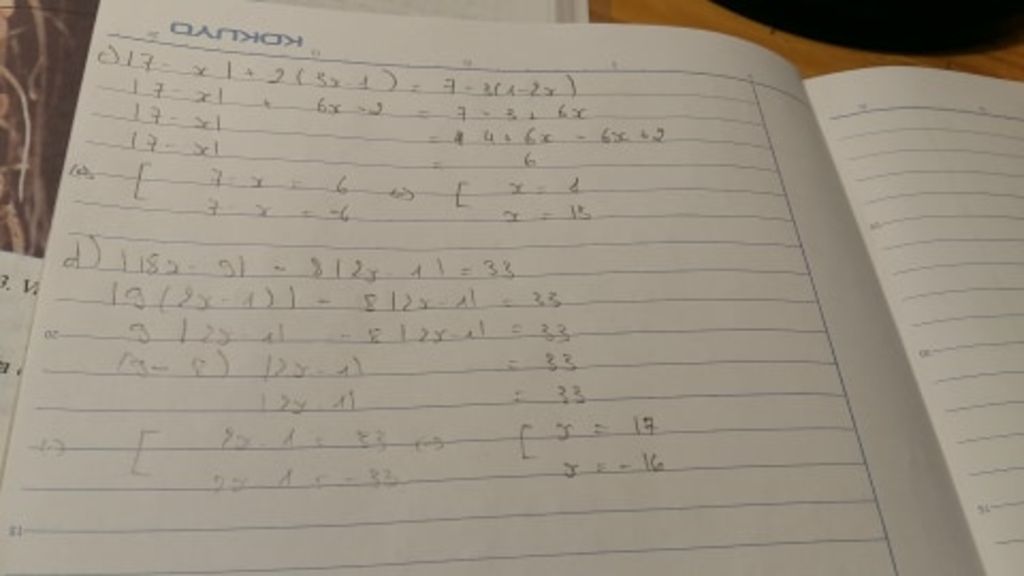 KOKUYO
c) |7 - x| + 2(3x - 1) = 7 - 3(1 - 2x)
|7 - x| + 6x - 2 = 7 - 3 + 6x
|7 - x| = 4 + 6x - 6x + 2
|7 - x| = 6
(=) [ 7 - x = 6 (=) [ x = 1
7 - x = -6 x = 13
d) |18x - 9| - 8|2x - 1| = 33
|9(2x - 1)| - 8|2x - 1| = 33
9|2x - 1| - 8|2x - 1| = 33
(9 - 8) |2x - 1| = 33
|2x - 1| = 33
(=) [ 2x - 1 = 33 (=) [ x = 17
2x - 1 = -33 x = -16